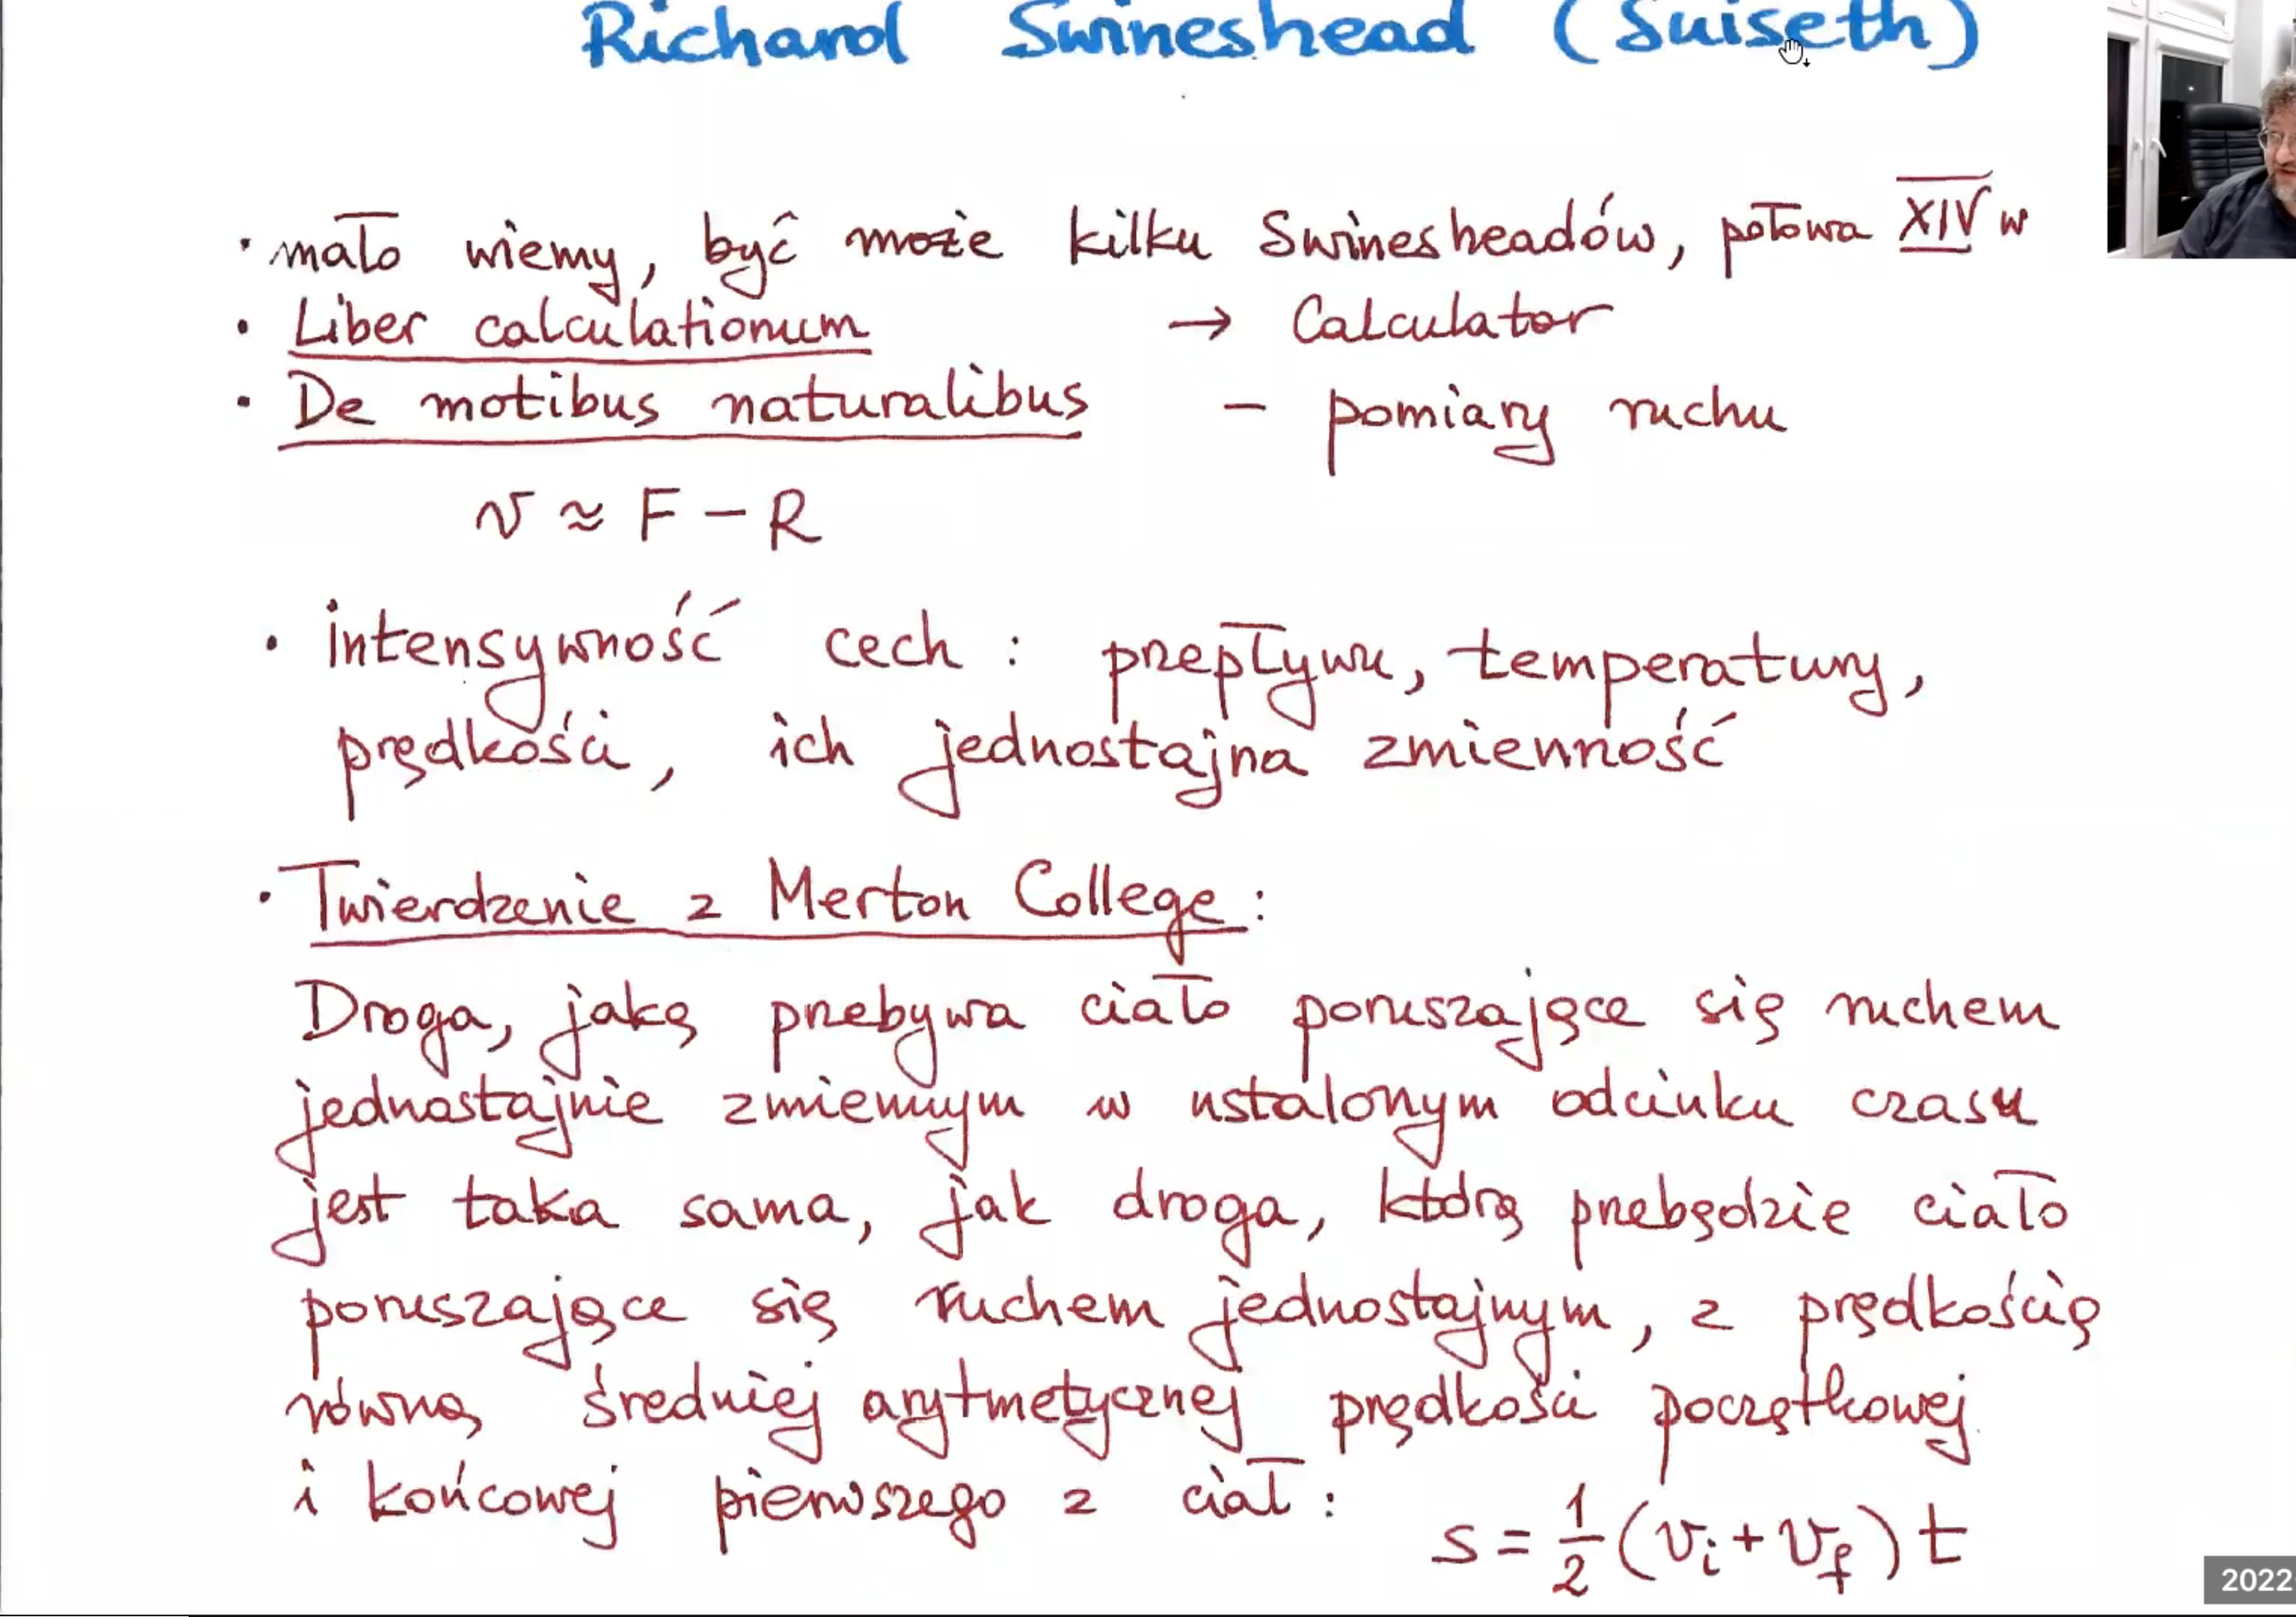 Richard Swineshead (Suiseth)
• mało wiemy, być może kilku Swinesheadów, połowa XIV w
• Liber calculationum → Calculator
• De motibus naturalibus – pomiary ruchu
v ≈ F – R
• intensywność cech : przepływu, temperatury,
prędkości, ich jednostajna zmienność
• Twierdzenie z Merton College :
Droga, jaką przebywa ciało poruszające się ruchem
jednostajnie zmiennym w ustalonym odcinku czasu
jest taka sama, jak droga, którą przebędzie ciało
poruszające się ruchem jednostajnym, z prędkością
równą średniej arytmetycznej prędkości początkowej
i końcowej pierwszego z ciał :
s = 1/2 (v_i + v_f) t
2022